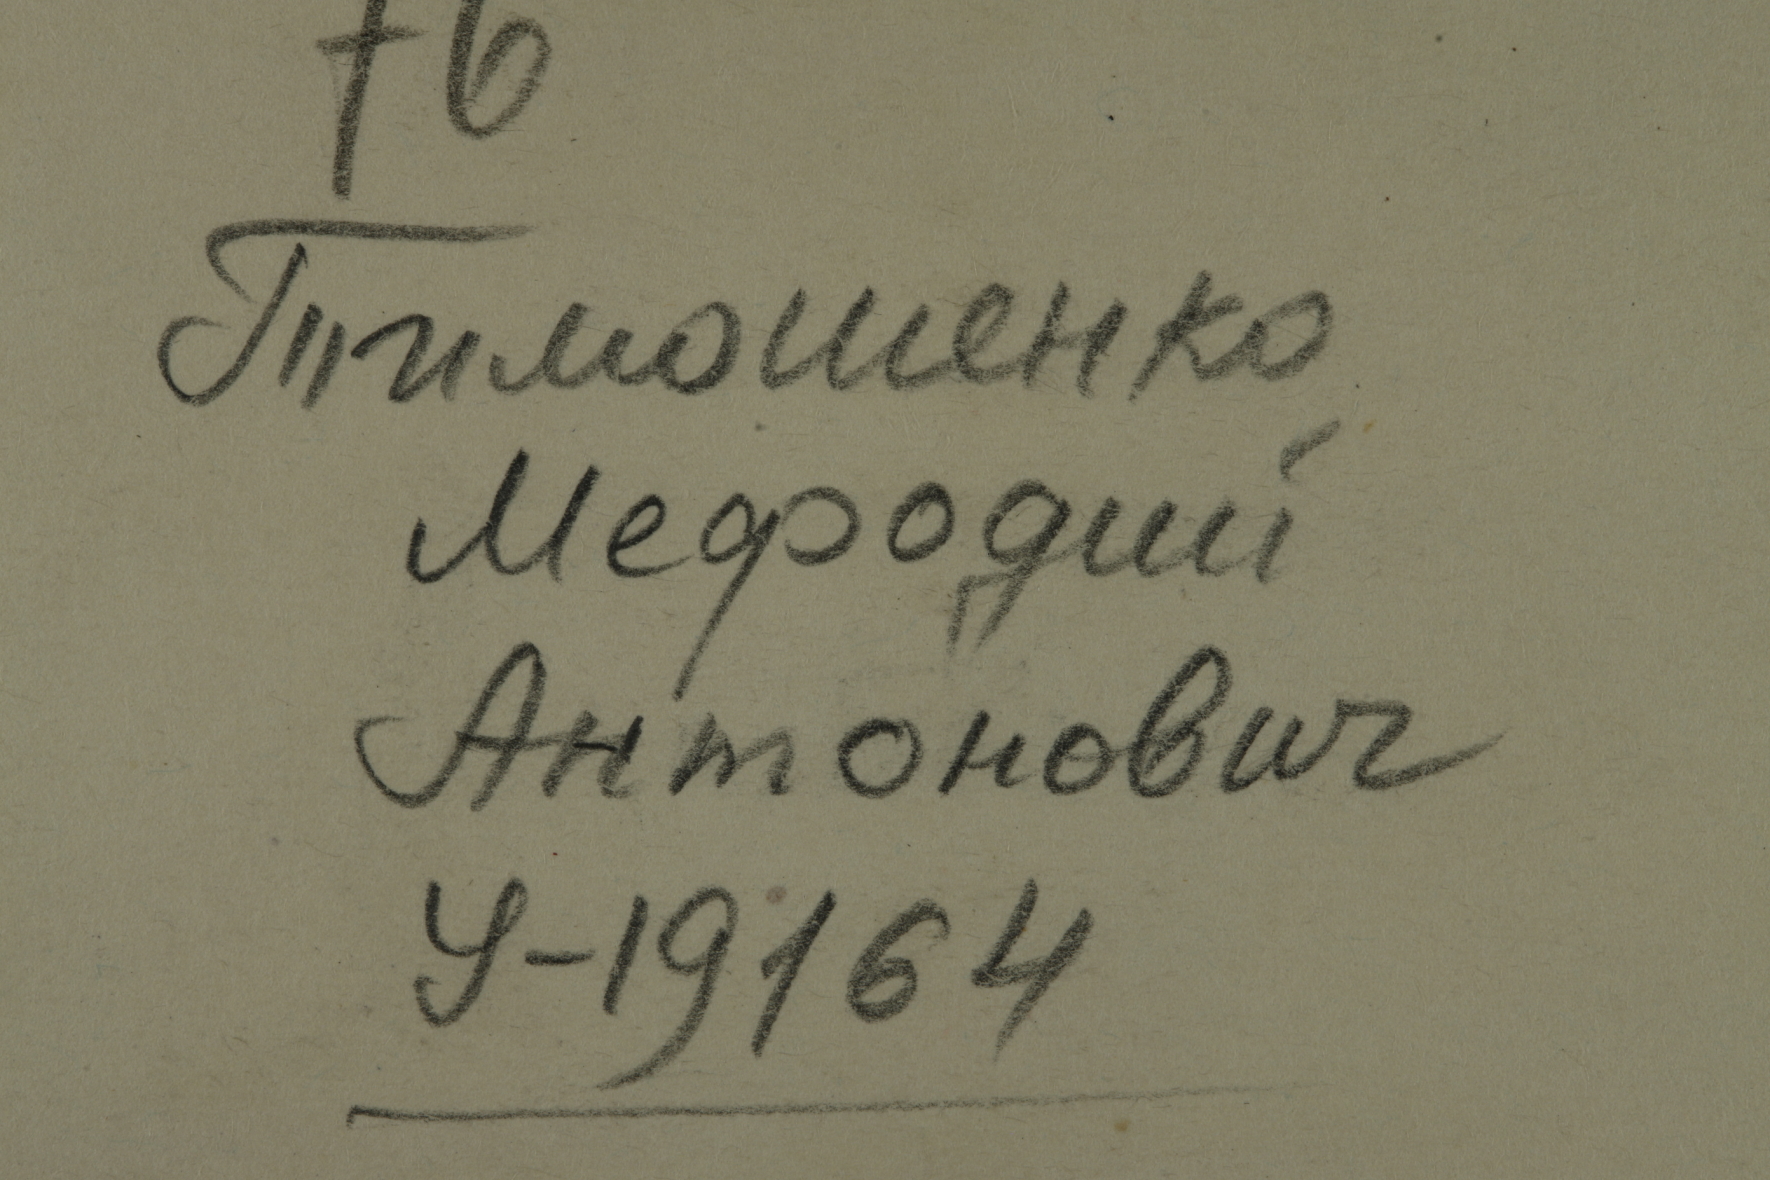 76
Тимошенко
Мефодий
Антонович
У-19164